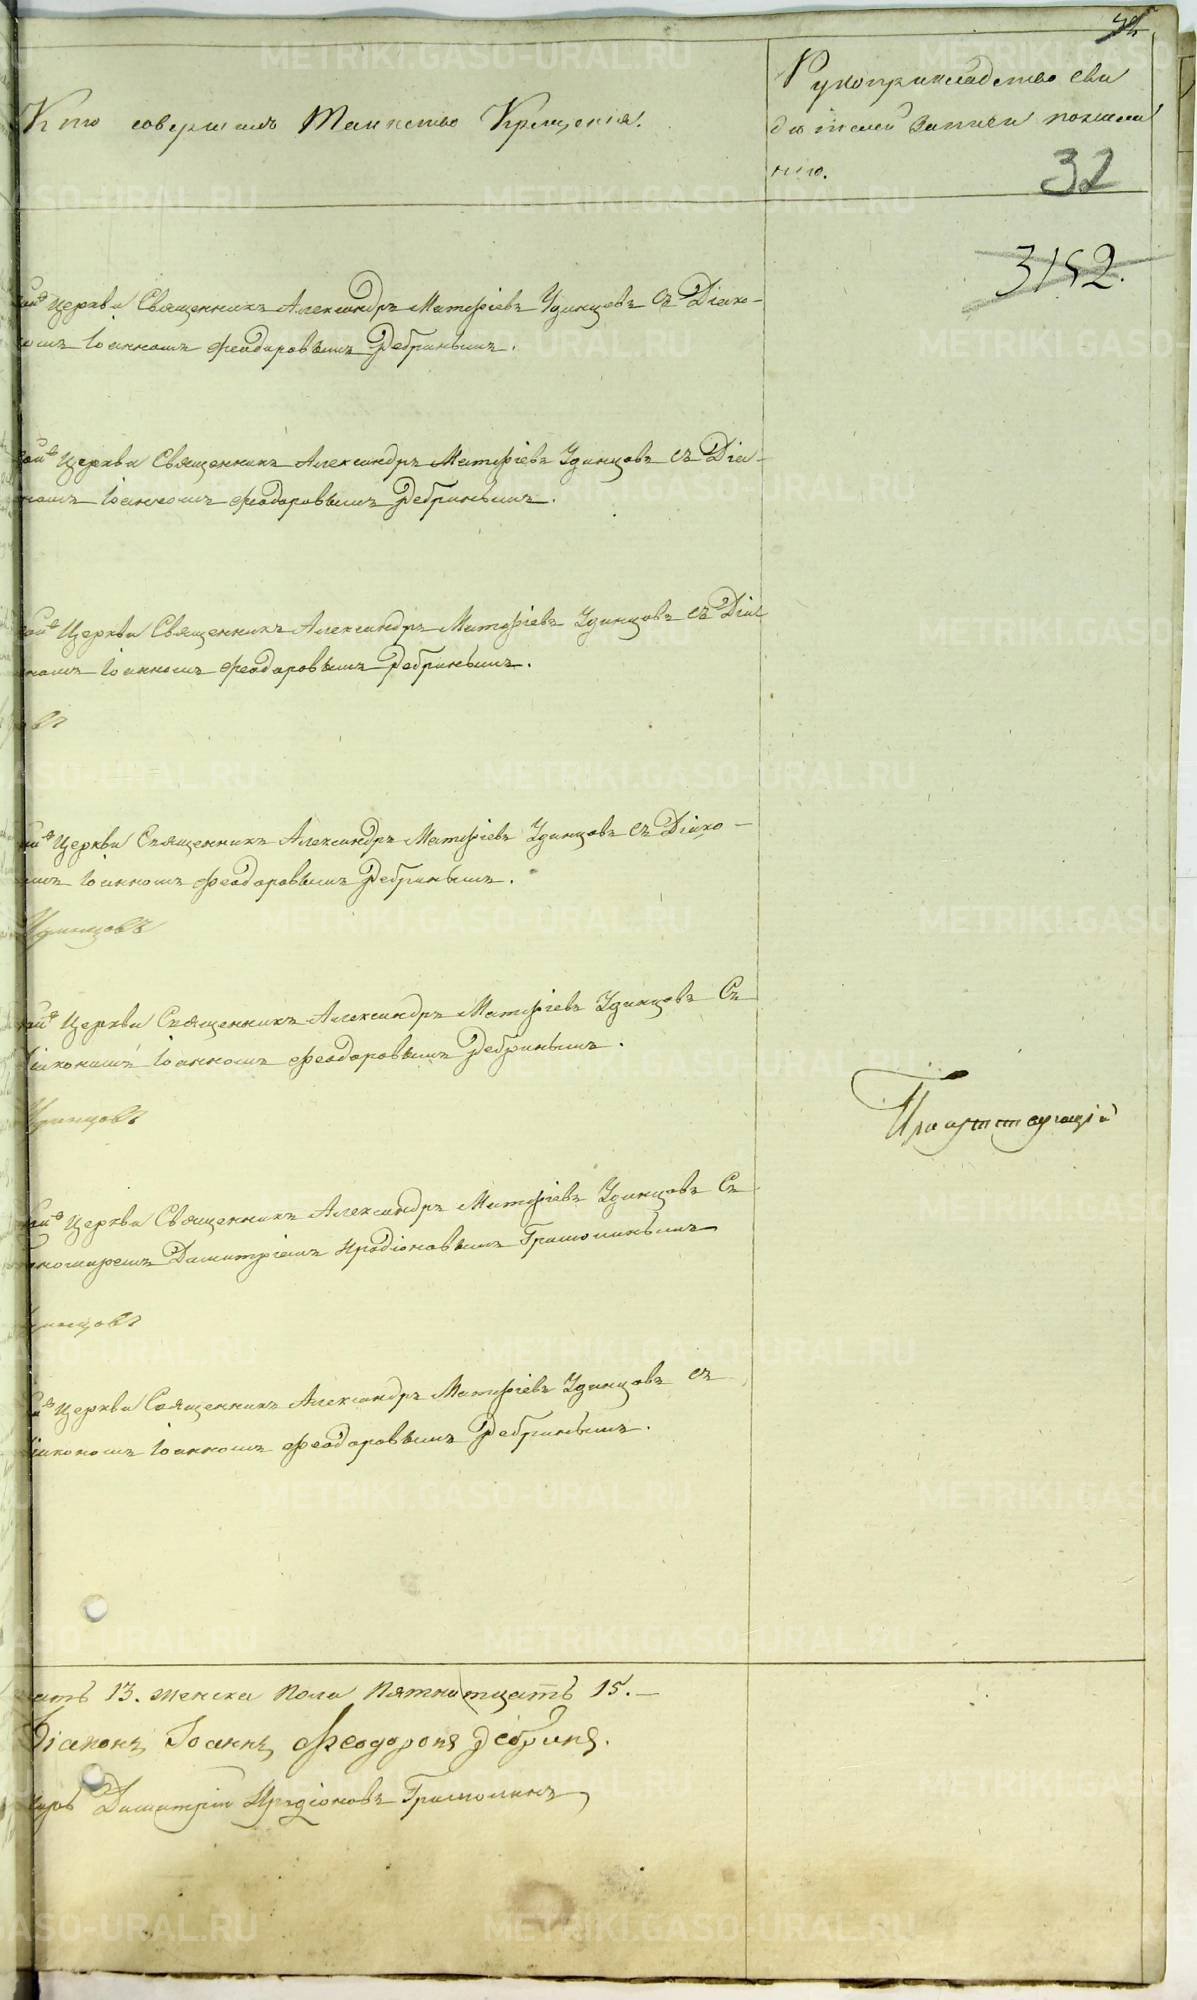 Кто совершалъ Таинство Крещенія.
Рукоприкладство сви
дѣтелей записи пожела
нію.
32
3152.
Церкви Священникъ Александръ Матфіевъ Удинцовъ съ Діако-
Іоанномъ Феодоровымъ Дебринымъ.
Церкви Священникъ Александръ Матфіевъ Удинцовъ съ Діа-
кономъ Іоанномъ Феодоровымъ Дебринымъ.
Церкви Священникъ Александръ Матфіевъ Удинцовъ съ Діа
кономъ Іоанномъ Феодоровымъ Дебринымъ.
овъ
Церкви Священникъ Александръ Матфіевъ Удинцовъ съ Діако-
Іоанномъ Феодоровымъ Дебринымъ.
Удинцовъ
Церкви Священникъ Александръ Матфіевъ Удинцовъ Съ
Діакономъ Іоанномъ Феодоровымъ Дебринымъ.
Удинцовъ
Церкви Священникъ Александръ Матфіевъ Удинцовъ Съ
Пономаремъ Димитріемъ Иродіоновымъ Грамолинымъ
Удинцовъ
Церкви Священникъ Александръ Матфіевъ Удинцовъ съ
Діакономъ Іоанномъ Феодоровымъ Дебринымъ.
ать 13. женска пола пятнатцать 15.-
Діаконъ Іоаннъ Феодоровъ Дебринъ.
Димитрій Иродіоновъ Грамолинъ